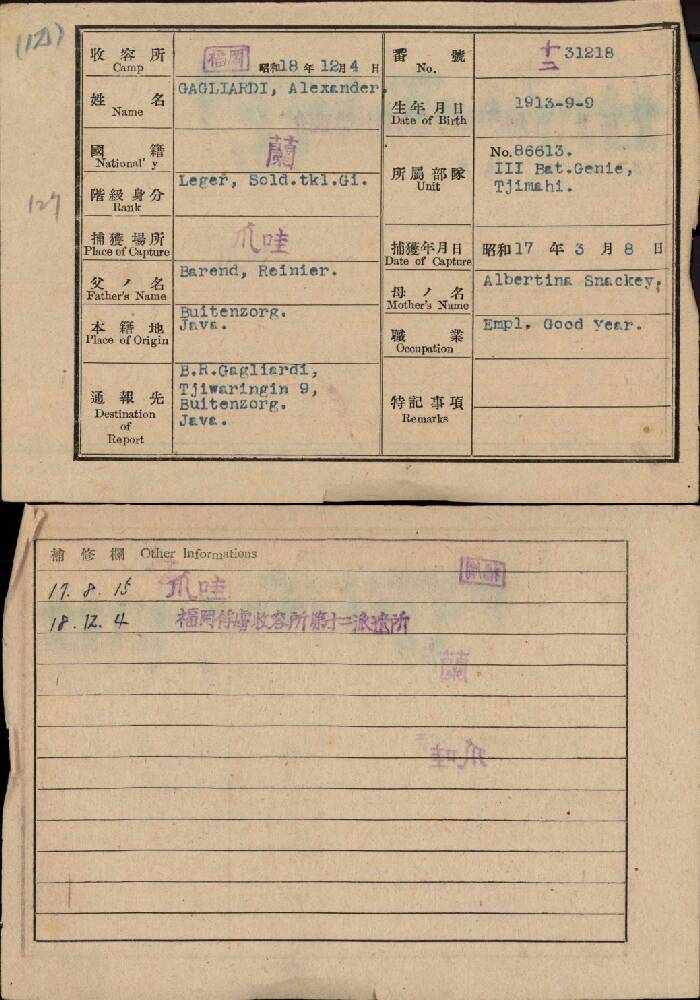 (121)
127
收容所
Camp
福岡
昭和18年12月4日
番號
No.
十二 31218
姓名
Name
GAGLIARDI, Alexander.
生年月日
Date of Birth
1913-9-9
國籍
National' y
蘭
所屬部隊
Unit
No.86613.
III Bat.Genie,
Tjimahi.
階級身分
Rank
Leger, Sold.tkl.Gi.
捕獲場所
Place of Capture
爪哇
捕獲年月日
Date of Capture
昭和17年3月8日
父ノ名
Father's Name
Barend, Reinier.
母ノ名
Mother's Name
Albertina Snackey.
本籍地
Place of Origin
Buitenzorg.
Java.
職業
Occupation
Empl. Good Year.
通報先
Destination
of
Report
B.R.Gagliardi,
Tjiwaringin 9,
Buitenzorg.
Java.
特記事項
Remarks
補修欄 Other Informations
17. 8. 15 爪哇
18. 12. 4 福岡俘虜收容所第十二派遣所